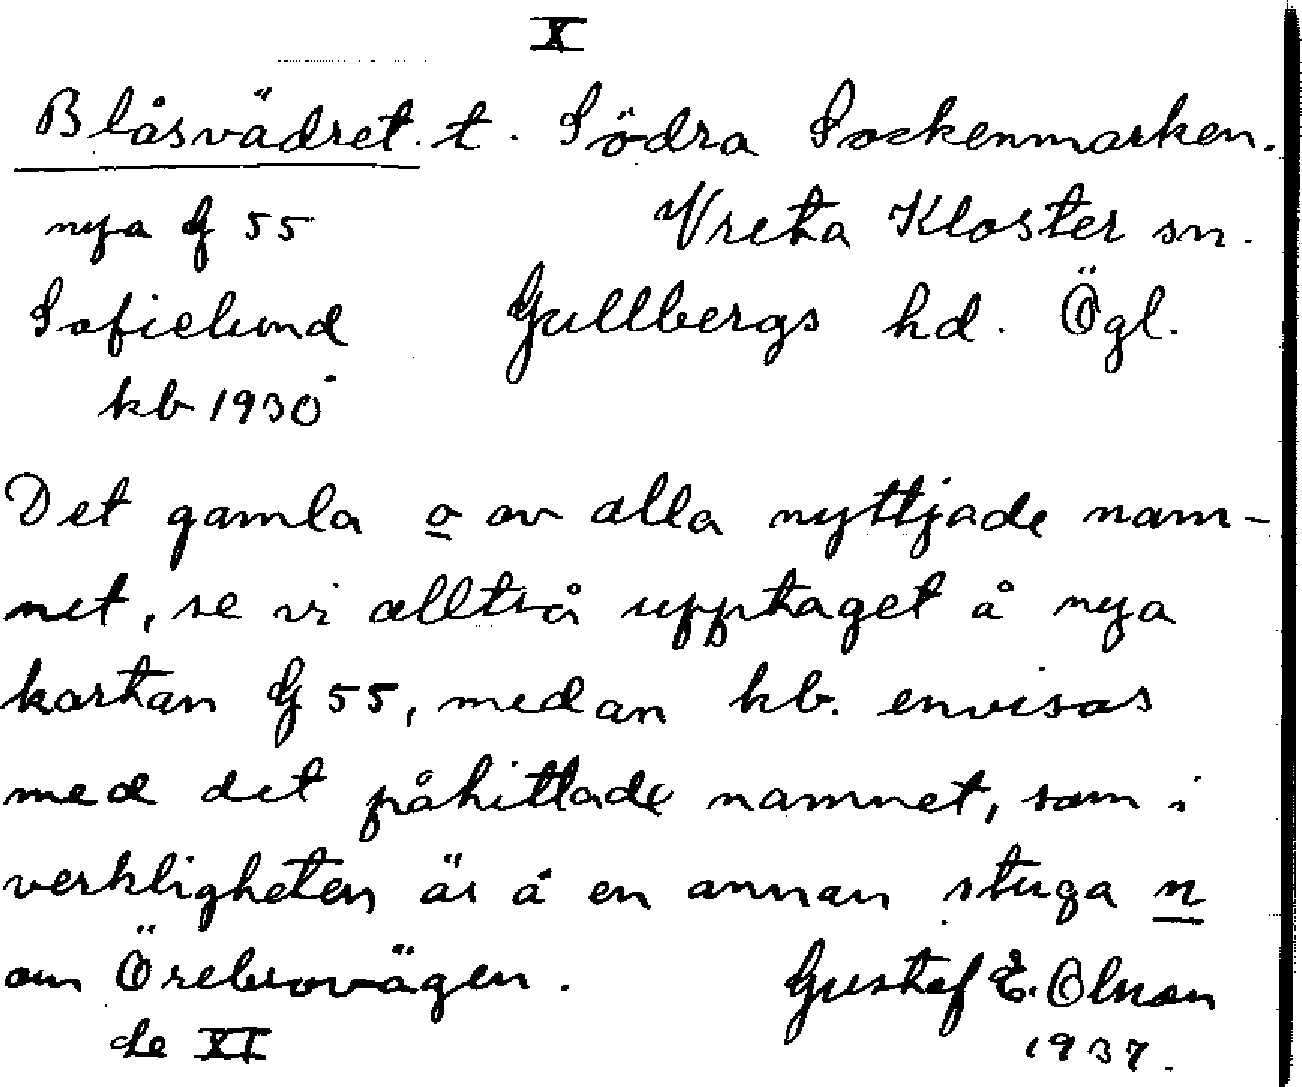 X
Blåsvädret. t. Södra Sockenmarken.
nya G 55 Vreta Kloster sn.
Sofielund Gullbergs hd. Ögl.
kb 1930
Det gamla o av alla nyttjade nam-
net, se vi alltså upptaget å nya
kartan G 55, medan kb. envisas
med det påhittade namnet, som i
verkligheten är å en annan stuga n
om Örebrovägen. Gustaf E. Olsson
XI 1937.